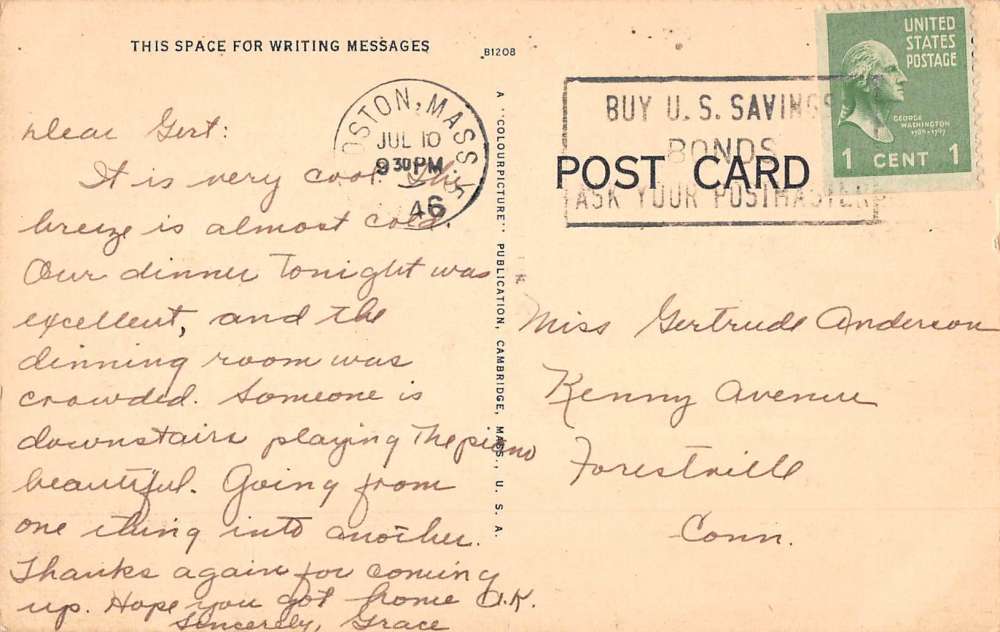 THIS SPACE FOR WRITING MESSAGES
B1208
Dear Gert:
It is very cool. The
breeze is almost cold.
Our dinner Tonight was
excellent, and the
dinning room was
crowded. Someone is
downstairs playing The piano
beautiful. Going from
one thing into another.
Thanks again for coming
up. Hope you got home O.K.
Sincerely, Grace
BOSTON, MASS.
JUL 10
9 30 PM
46
A "COLOURPICTURE" PUBLICATION, CAMBRIDGE, MASS., U. S. A.
BUY U.S. SAVINGS
BONDS
ASK YOUR POSTMASTER
POST CARD
UNITED
STATES
POSTAGE
GEORGE
WASHINGTON
1789-1797
1 CENT 1
Miss Gertrude Anderson
Kenny Avenue
Forestville
Conn.